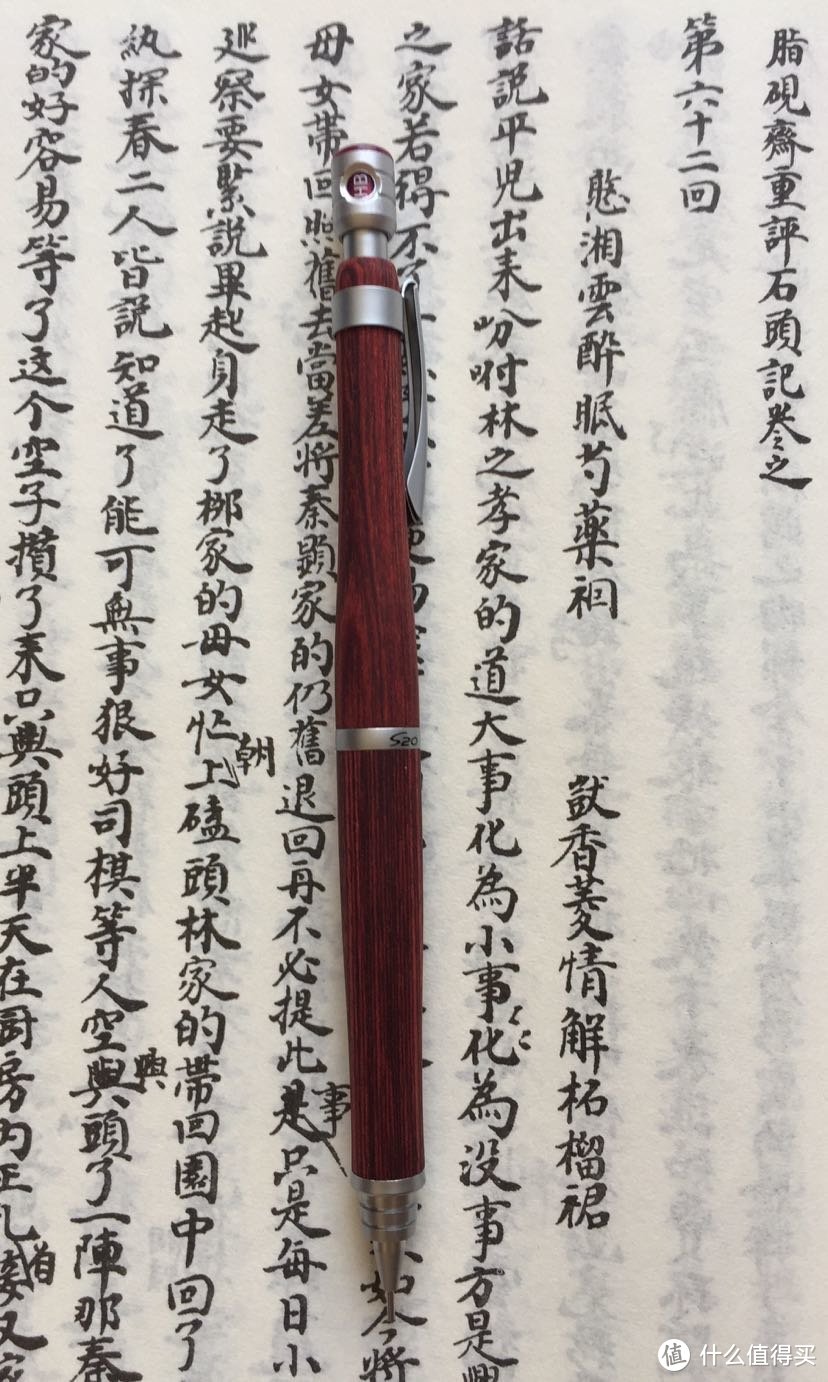 脂硯齋重評石頭記卷之
第六十二回
憨湘雲醉眠芍藥裀 獃香菱情解柘榴裙
話說平児出来吩咐林之孝家的道大事化為小事化為没事方是興
之家若得不了 如今将
母女帶回照舊去當差将秦顕家的仍舊退回再不必提此是事只是每日小
廵察要緊說畢起身走了栁家的母女忙上朝磕頭林家的帶回園中回了
紈探春二人皆說知道了能可無事狠好司棋等人空興興頭了一陣那秦
家的好容易等了这个空子攅了来只興頭上半天在厨房内正乱
又
HB
S20
值 什么值得买